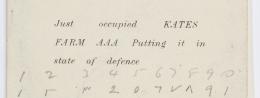 Just occupied KATES
FARM AAA Putting it in
state of defence
1 2 3 4 5 6 7 8 9 0